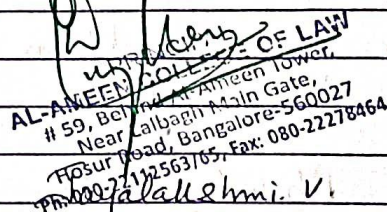 PRINCIPAL
AL-AMEEN COLLEGE OF LAW
# 59, Behind Al-Ameen Tower,
Near Lalbagh Main Gate,
Hosur Road, Bangalore-560027
Fax: 080-22278464
V.